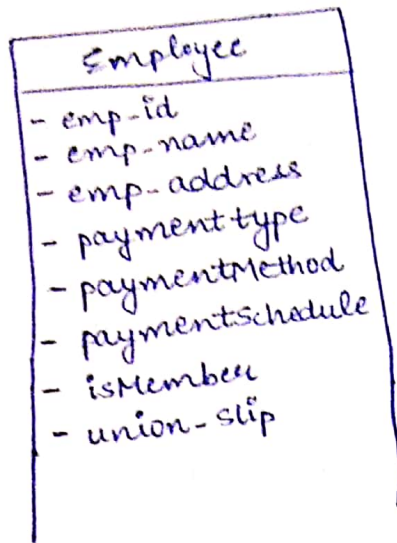 Employee
- emp-id
- emp-name
- emp-address
- payment type
- paymentMethod
- paymentSchedule
- isMember
- union-slip